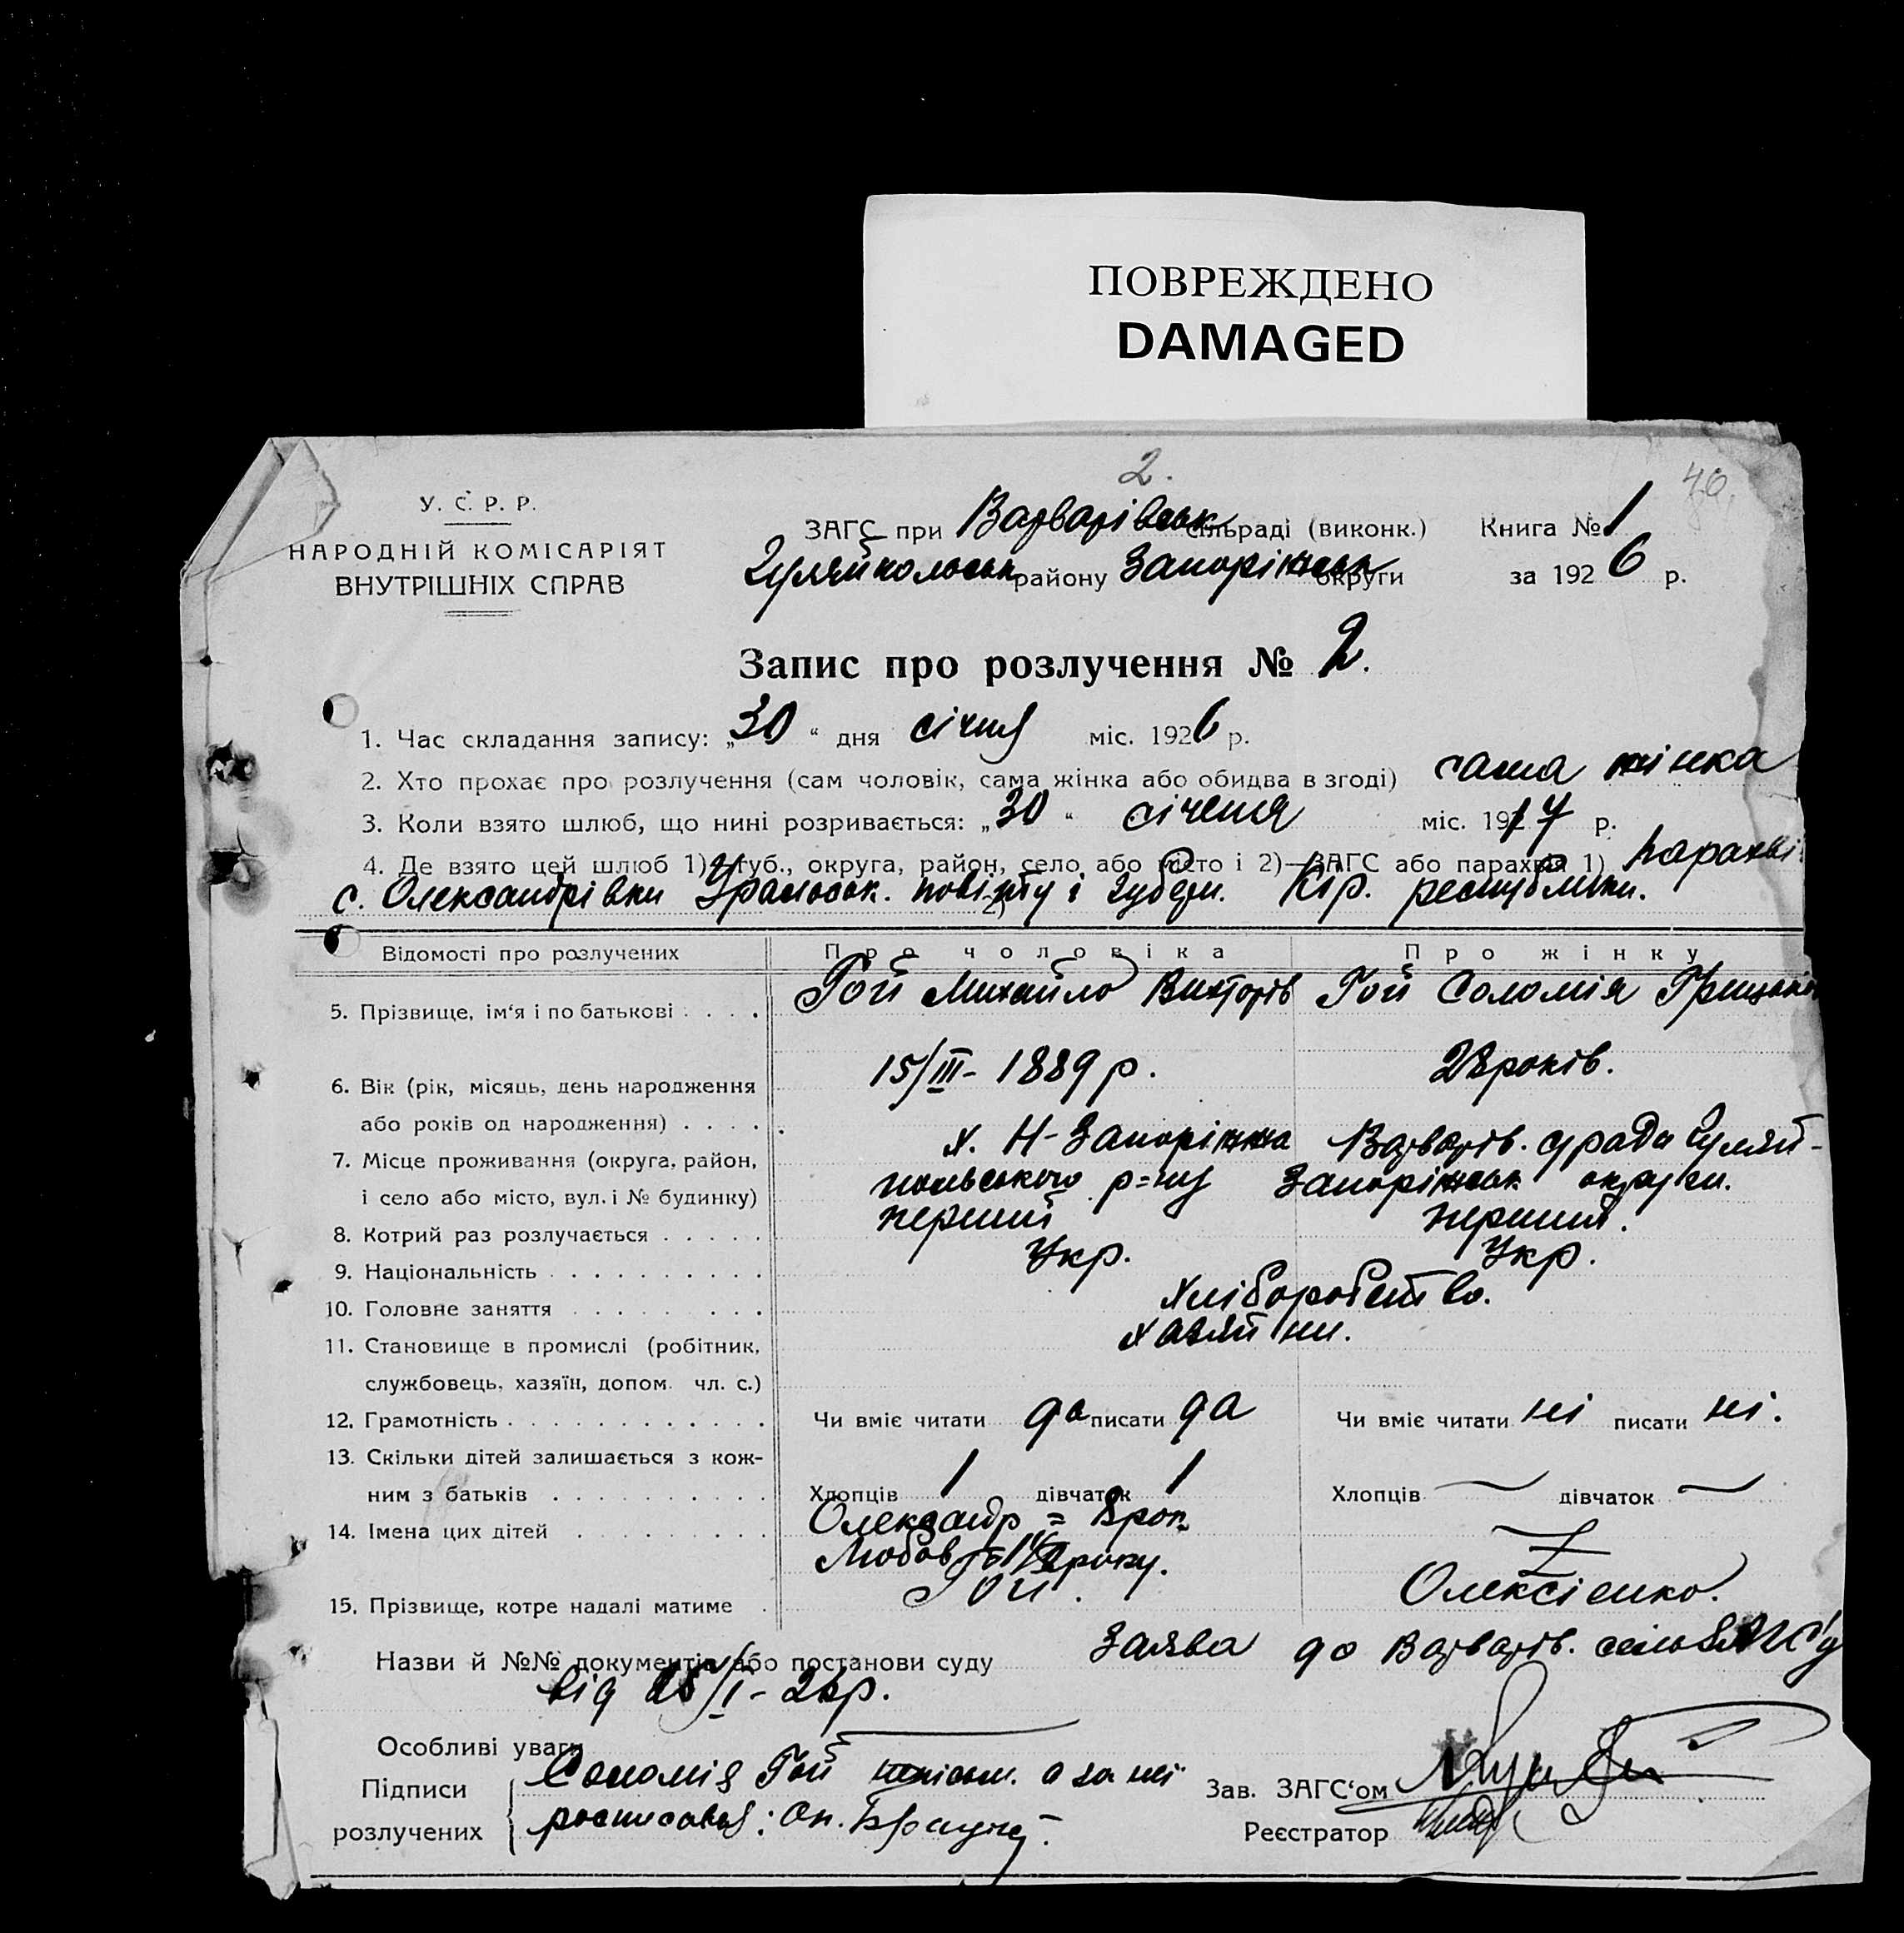 ПОВРЕЖДЕНО
DAMAGED
2.
46.
У. С. Р. Р.
НАРОДНІЙ КОМІСАРІЯТ
ВНУТРІШНІХ СПРАВ
ЗАГС при Варварівськ сільраді (виконк.) Книга № 1
Гуляйпольськ району Запоріжськ округи за 1926 р.
Запис про розлучення № 2.
1. Час складання запису: „30“ дня січня міс. 1926 р.
2. Хто прохає про розлучення (сам чоловік, сама жінка або обидва в згоді) сама жінка
3. Коли взято шлюб, що нині розривається: „30“ січеня міс. 1917 р.
4. Де взято цей шлюб 1)—губ., округа, район, село або місто і 2)—ЗАГС або парахвія 1) парахві
с. Олександрівки Уральськ. повіту і губерн. Кір. республіки.
2)
Відомості про розлучених Про чоловіка Про жінку
5. Прізвище, ім‘я і по батькові . . . . Гой Михайло Вихторів Гой Соломія Грицьків
6. Вік (рік, місяць, день народження 15/III- 1889 р. 28 років.
або років од народження) . . . . .
7. Місце проживання (округа, район, х. Н-Запоріжжа Варварів. с/рада Гуляй-
і село або місто, вул. і № будинку) польського р=ну Запоріжськ округи.
8. Котрий раз розлучається . . . . . перший перший.
9. Національність . . . . . . . . . . Укр. Укр.
10. Головне заняття . . . . . . . . . Хліборобство.
11. Становище в промислі (робітник, хазяйни.
службовець, хазяїн, допом. чл. с.)
12. Грамотність . . . . . . . . . . . . Чи вміє читати да писати да Чи вміє читати ні писати ні.
13. Скільки дітей залишається з кож-
ним з батьків . . . . . . . . . . Хлопців 1 дівчаток 1 Хлопців — дівчаток —
14. Імена цих дітей . . . . . . . . . Олександр = 8 рок.
Любов року.
15. Прізвище, котре надалі матиме . Гой. Олексієнко.
Назви й №№ документів або постанови суду Заява до Варварів. сельЗАГС'у
від /I- 26 р.
Особливі уваги
Підписи Соломія Гой а за неї Зав. ЗАГС‘ом
розлучених росписався: Оп. Реєстратор